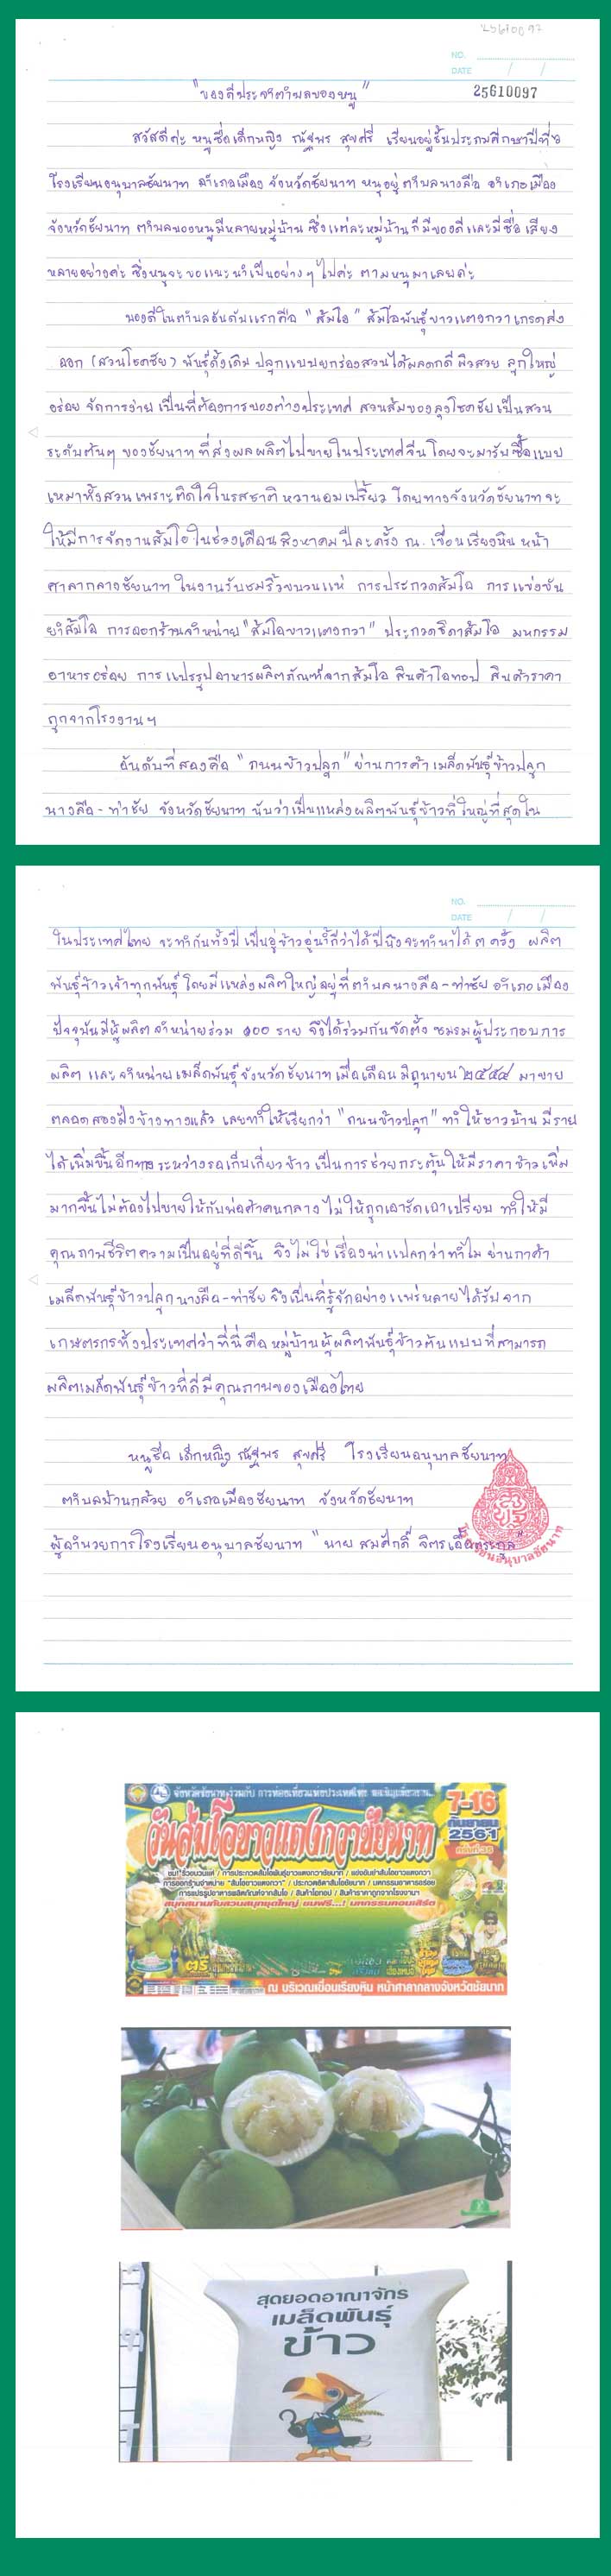 NO.
DATE / /
25610097
"ของดีประจำตำบลของหนู"
สวัสดีค่ะ หนูชื่อเด็กหญิง ณัฐพร สุขศรี เรียนอยู่ชั้นประถมศึกษาปีที่
โรงเรียนอนุบาลชัยนาท อำเภอเมือง จังหวัดชัยนาท หนูอยู่ตำบลนางลือ อำเภอเมือง
จังหวัดชัยนาท ตำบลของหนูมีหลายหมู่บ้าน ซึ่งแต่ละหมู่บ้านก็มีของดีและมีชื่อเสียง
หลายอย่างค่ะ ซึ่งหนูจะขอแนะนำเป็นอย่างๆ ไปค่ะ ตามหนูมาเลยค่ะ
ของดีในตำบลอันดับแรกคือ "ส้มโอ" ส้มโอพันธุ์ขาวแตงกวาเกรดส่ง
ออก (สวนโชคชัย) พันธุ์ดั้งเดิม ปลูกแบบยกร่องสวนได้ผลดกดี ผิวสวย ลูกใหญ่
อร่อย จัดการง่าย เป็นที่ต้องการของต่างประเทศ สวนส้มของลุงโชคชัยเป็นสวน
ระดับต้นๆ ของชัยนาท ที่ส่งผลผลิตไปขายในประเทศจีน โดยจะมารับซื้อแบบ
เหมาทั้งสวนเพราะติดใจในรสชาติ หวานอมเปรี้ยว โดยทางจังหวัดชัยนาทจะ
ให้มีการจัดงานส้มโอในช่วงเดือนสิงหาคมปีละครั้ง ณ. เขื่อนเรียงหิน หน้า
ศาลากลางชัยนาท ในงานรับชมริ้วขบวนแห่ การประกวดส้มโอ การแข่งขัน
ยำส้มโอ การออกร้านจำหน่าย "ส้มโอขาวแตงกวา" ประกวดธิดาส้มโอ มหกรรม
อาหารอร่อย การแปรรูปอาหารผลิตภัณฑ์จากส้มโอ สินค้าโอทอป สินค้าราคา
ถูกจากโรงงานฯ
อันดับที่สองคือ "ถนนข้าวปลูก" ย่านการค้าเมล็ดพันธุ์ข้าวปลูก
นางลือ - ท่าชัย จังหวัดชัยนาท นับว่าเป็นแหล่งผลิตพันธุ์ข้าวที่ใหญ่ที่สุดใน
NO.
DATE / /
ในประเทศไทย จะทำกันทั้งปี เป็นอู่ข้าวอู่น้ำก็ว่าได้ปีนึงจะทำนาได้ ๓ ครั้ง ผลิต
พันธุ์ข้าวเจ้าทุกพันธุ์ โดยมีแหล่งผลิตใหญ่อยู่ที่ตำบลนางลือ - ท่าชัย อำเภอเมือง
ปัจจุบันมีผู้ผลิตจำหน่ายร่วม ๑๐๐ ราย จึงได้ร่วมกันจัดตั้ง ชมรมผู้ประกอบการ
ผลิต และจำหน่ายเมล็ดพันธุ์จังหวัดชัยนาท เมื่อเดือนมิถุนายน มาขาย
ตลอดสองฝั่งข้างทางแล้ว เลยทำให้เรียกว่า "ถนนข้าวปลูก" ทำให้ชาวบ้านมีราย
ได้เพิ่มขึ้นอีกทางระหว่างรอเก็บเกี่ยวข้าว เป็นการช่วยกระตุ้นให้มีราคาข้าวเพิ่ม
มากขึ้นไม่ต้องไปขายให้กับพ่อค้าคนกลาง ไม่ให้ถูกเอารัดเอาเปรียบ ทำให้มี
คุณภาพชีวิตความเป็นอยู่ที่ดีขึ้น จึงไม่ใช่เรื่องน่าแปลกว่าทำไม ย่านกาค้า
เมล็ดพันธุ์ข้าวปลูกนางลือ-ท่าชัย จึงเป็นที่รู้จักอย่างแพร่หลายได้รับจาก
เกษตรกรทั้งประเทศว่าที่นี่คือหมู่บ้านผู้ผลิตพันธุ์ข้าวต้นแบบที่สามารถ
ผลิตเมล็ดพันธุ์ข้าวที่ดีมีคุณภาพของเมืองไทย
หนูชื่อ เด็กหญิง ณัฐพร สุขศรี โรงเรียนอนุบาลชัยนาท
ตำบลบ้านกล้วย อำเภอเมืองชัยนาท จังหวัดชัยนาท
ผู้อำนวยการโรงเรียนอนุบาลชัยนาท "นาย สมศักดิ์ จิตรเอื้อตระกูล"
โรงเรียนอนุบาลชัยนาท
จังหวัดชัยนาท ร่วมกับ การท่องเที่ยวแห่งประเทศไทย
วันส้มโอขาวแตงกวาชัยนาท
7-16
กันยายน
2561
ชม! ริ้วขบวนแห่ / การประกวดส้มโอพันธุ์ขาวแตงกวาชัยนาท / แข่งขันยำส้มโอขาวแตงกวา
การออกร้านจำหน่าย "ส้มโอขาวแตงกวา" / ประกวดธิดาส้มโอชัยนาท / มหกรรมอาหารอร่อย
การแปรรูปอาหารผลิตภัณฑ์จากส้มโอ / สินค้าโอทอป / สินค้าราคาถูกจากโรงงานฯ
สนุกสนานกับสวนสนุกชุดใหญ่ ชมฟรี...! มหกรรมคอนเสิร์ต
ฟรี
ณ บริเวณเขื่อนเรียงหิน หน้าศาลากลางจังหวัดชัยนาท
สุดยอดอาณาจักร
เมล็ดพันธุ์
ข้าว